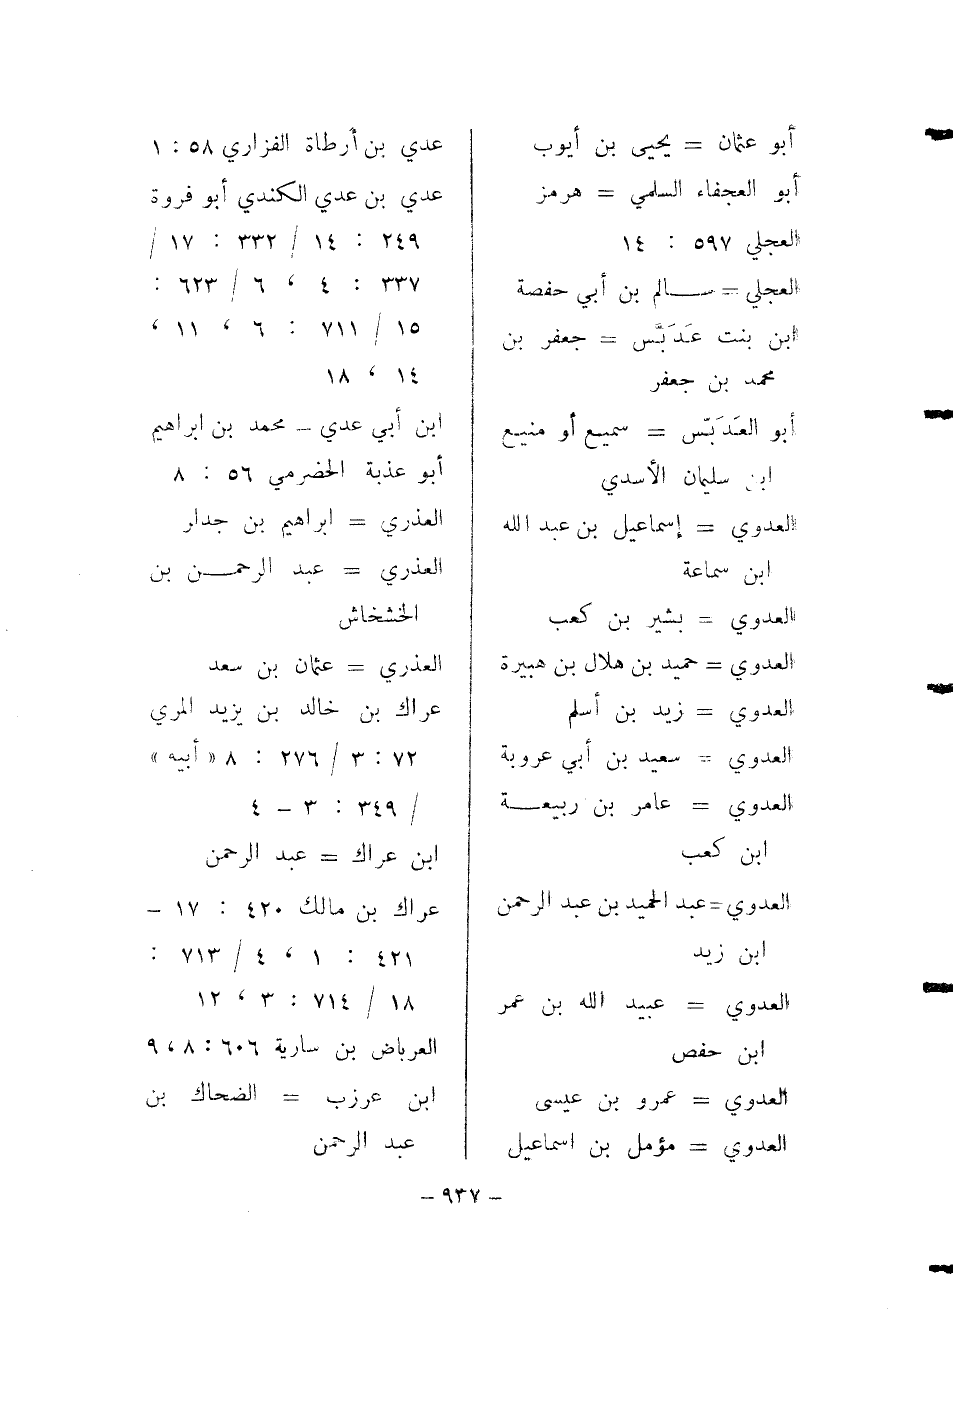 أبو عثمان = يحيى بن أيوب
أبو العجفاء السلمي = هرمز
العجلي ٥٩٧ : ١٤
العجلي = سالم بن أبي حفصة
ابن بنت عَدَبَّس = جعفر بن
محمد بن جعفر
أبو العَدَبّس = سميع أو منيع
ابن سليمان الأسدي
العدوي = إسماعيل بن عبد الله
ابن سماعة
العدوي = بشير بن كعب
العدوي = حميد بن هلال بن هبيرة
العدوي = زيد بن أسلم
العدوي = سعيد بن أبي عروبة
العدوي = عامر بن ربيعة
ابن كعب
العدوي = عبد الحميد بن عبد الرحمن
ابن زيد
العدوي = عبيد الله بن عمر
ابن حفص
العدوي = عمرو بن عيسى
العدوي = مؤمل بن اسماعيل
عدي بن أرطاة الفزاري ٥٨ : ١
عدي بن عدي الكندي أبو فروة
٢٤٩ : ١٤ / ٣٣٢ : ١٧ /
٣٣٧ : ٤ ، ٦ / ٦٢٣ :
١٥ / ٧١١ : ٦ ، ١١ ،
١٤ ، ١٨
ابن أبي عدي = محمد بن ابراهيم
أبو عذبة الحضرمي ٥٦ : ٨
العذري = ابراهيم بن جدار
العذري = عبد الرحمن بن
الخشخاش
العذري = عثمان بن سعد
عراك بن خالد بن يزيد المري
٧٢ : ٣ / ٢٧٦ : ٨ « أبيه »
/ ٣٤٩ : ٣ – ٤
ابن عراك = عبد الرحمن
عراك بن مالك ٤٢٠ : ١٧ –
٤٢١ : ١ ، ٤ / ٧١٣ :
١٨ / ٧١٤ : ٣ ، ١٢
العرباض بن سارية ٦٠٦ : ٨ ، ٩
ابن عرزب = الضحاك بن
عبد الرحمن
– ٩٣٧ –